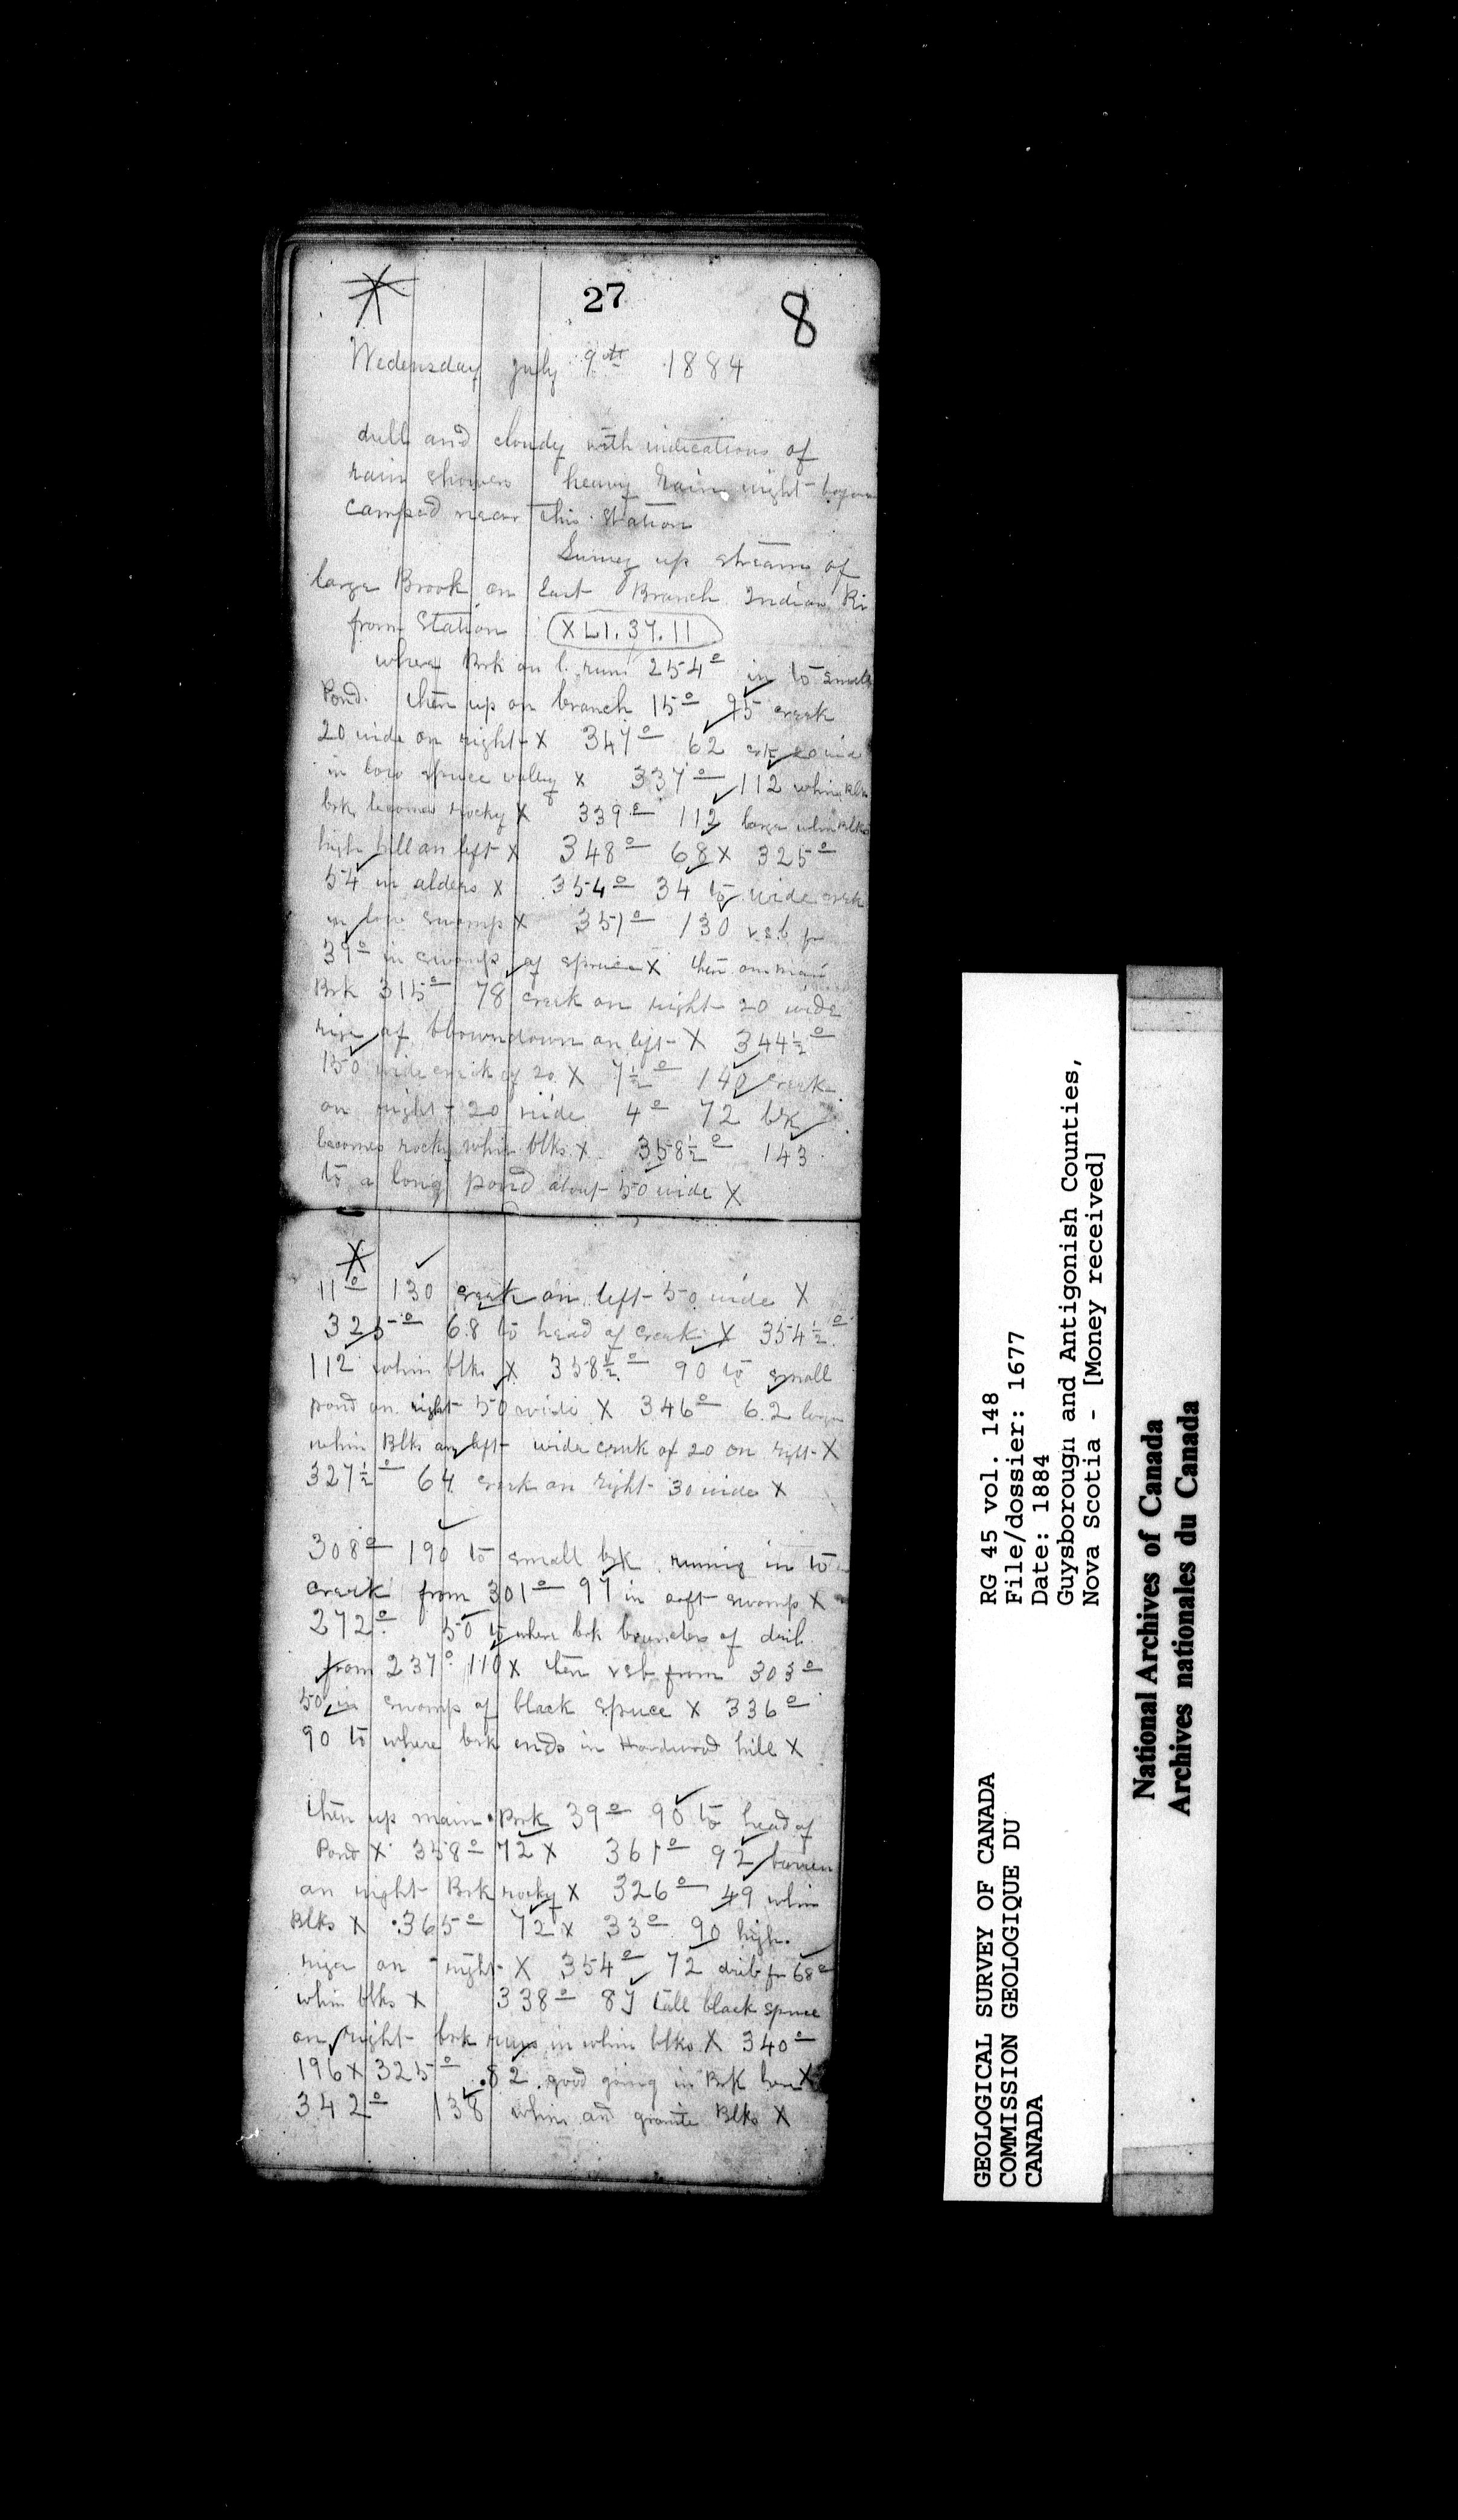 27 8
Wedensday July 9th 1884
dull and cloudy with indications of
rain showers heavy rain night before
camped near this station
Survey up stream of
large Brook on East Branch Indian Ri
from Station XLI.37.11
where Brk on l. runs 254° in to small
Pond. then up on branch 15° 95 creek
20 wide on right X 347° 62 crk 20 wide
in low spruce valley X 337° 112 whin blks
brk becomes rocky X 339° 112 large whin blks
high hill on left X 348° 68 X 325°
54 in alders X 354° 34 to wide creek
in low swamp X 351° 130 v.s.b fr
39° in swamp of spruce X then on main
Brk 315° 78 creek on right 20 wide
rise of blowndown on left X 344½°
150 wide creek of 20 X 7½° 140 creek
on right 20 wide 4° 72 brk
becomes rocky whin blks X 358½° 143
to a long pond about 50 wide X
11° 130 creek on left 50 wide X
325° 68 to head of creek X 354½°
112 whin blks X 358½° 90 to small
pond on right 50 wide X 346° 62 large
whin Blks on left wide creek of 20 on right X
327½° 64 creek on right 30 wide X
308° 190 to small brk runnig in to
creek from 301° 97 in soft swamp X
272° 50 to where brk branches of drib
from 237° 110 X then vsb from 303°
50 in swamp of black spruce X 336°
90 to where brk ends in Hardwood hill X
then up main Brk 39° 90 to head of
Pond X 358° 72 X 361° 92 barren
on right Brk rocky X 326° 49 whin
Blks X 365° 72 X 33° 90 high
rise on right X 354° 72 drib fr 68°
whin blks X 338° 87 tall black spruce
on right brk runs in whin blks X 340°
196 X 325° 82 good going in Brk here X
342° 138 whin and granite Blks X
GEOLOGICAL SURVEY OF CANADA
COMMISSION GEOLOGIQUE DU
CANADA
RG 45 vol. 148
File/dossier: 1677
Date: 1884
Guysborough and Antigonish Counties,
Nova Scotia - [Money received]
National Archives of Canada
Archives nationales du Canada